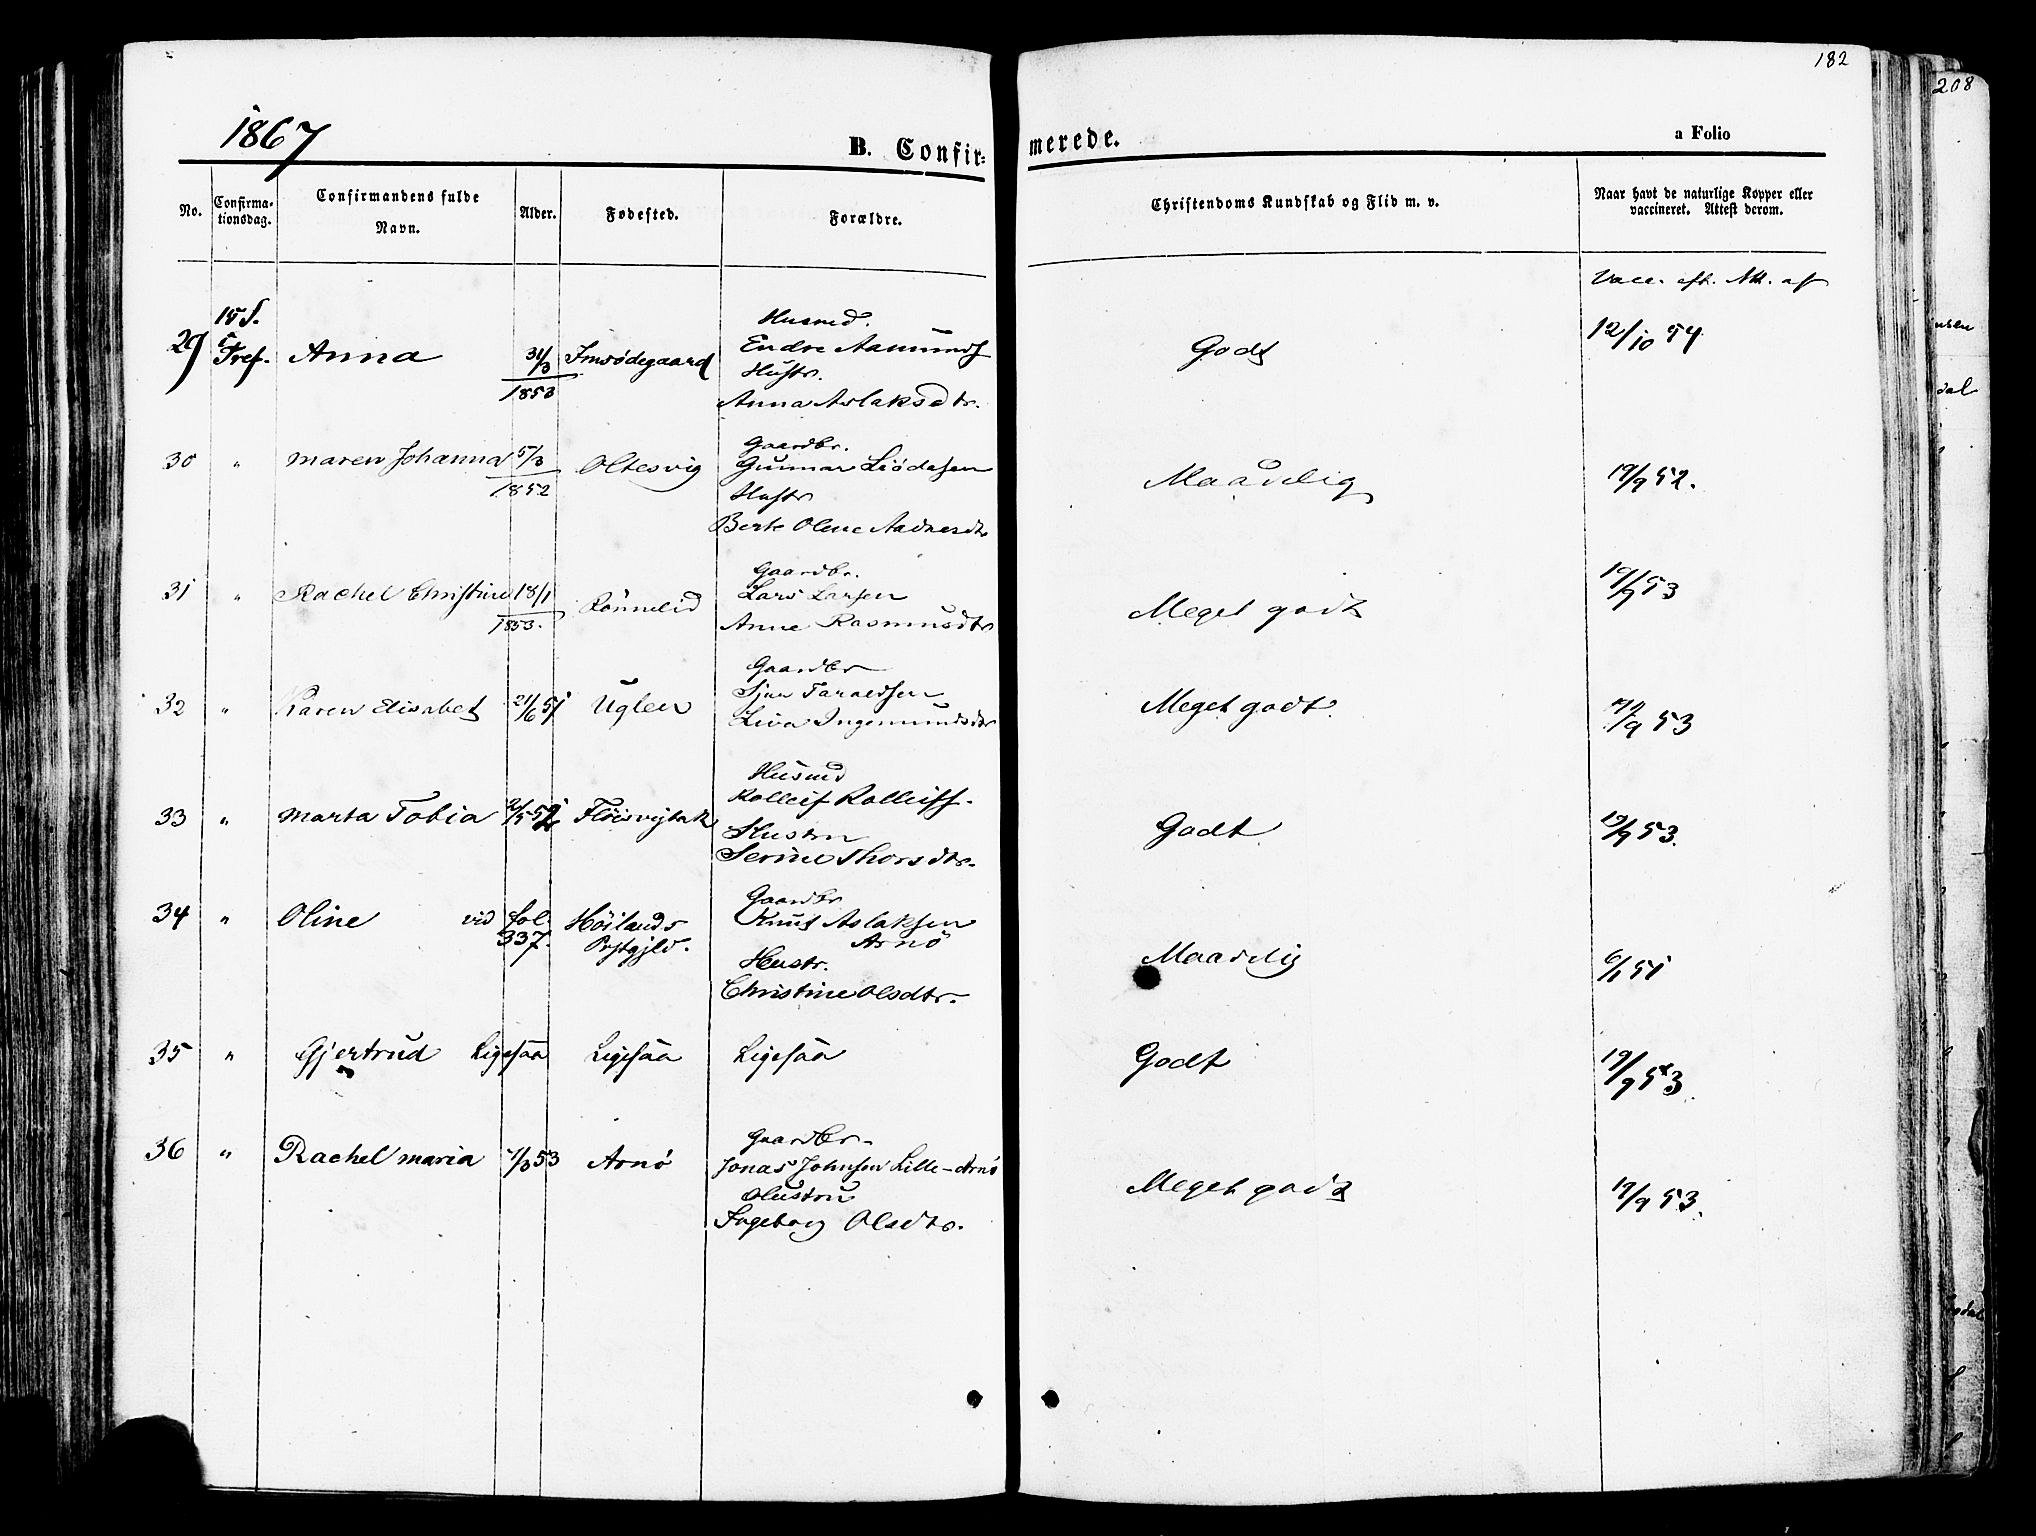 182
208
1867
B. Confirmerede.
a Folio
No.
Confirmationsdag.
Confirmandens fulde Navn.
Alder.
Fødested.
Forældre.
Christendoms Kundskab og Flid m. v.
Naar havt de naturlige Kopper eller vaccineret. Attest derom.
Vacc. eft. Att. af
29 15 S. e. Tref. Anna 31/3 1853 Imsødegaard
Husmd.
Endre Aamunds
Hustr.
Anna Aslaksdtr.
Godt 12/10 54
30 " Maren Johanna 5/3 1852 Oltesvig
Gaardbr.
Gunnar Liødesen
Hustr
Berte Olene Aadnesdtr
Maadelig 19/9 52.
31 " Rachel Christine 18/1 1853. Rönnelid
Gaardbr.
Lars Larsen
Anne Rasmusdtr
Meget godt 19/9 53
32 " Karen Elisabet 21/6 51 Uglen
Gaardbr
Taraldsen
Liva Ingemundsdtr
Meget godt. 19/9 53
33 " Marta Tobia
Husmd
Rolleif Rolleifs.
Hustru
Serine Thorsdtr.
Godt 19/9 53.
34 " Oline vid fol. 337. Höilands Prstgjld.
Gaardbr
Knut Aslaksen
Arnö
Hustr.
Christine Olsdtr.
Maadelig 6/1 51
35 " Gjertrud Ligesaa Ligesaa Ligesaa
Godt 19/9 53.
36 " Rachel Maria 1/3 53 Arnö
Gaardbr.
Jonas Johnsen Lille-Arnö
Hustru
Ingeborg Olsdtr.
Meget godt 19/9 53.